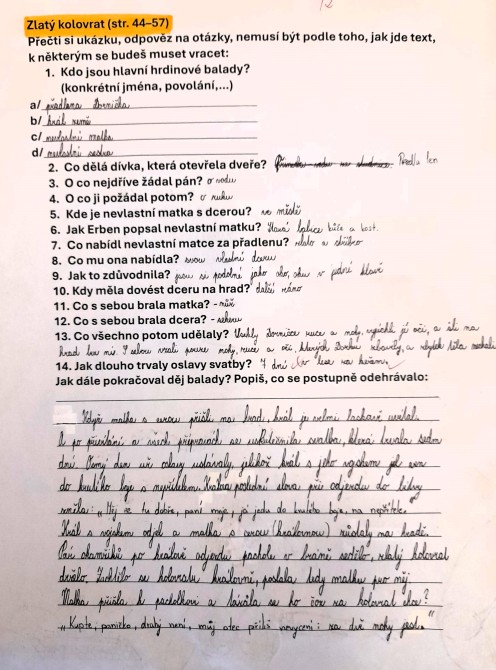 Zlatý kolovrat (str. 44–57)
Přečti si ukázku, odpověz na otázky, nemusí být podle toho, jak jde text,
k některým se budeš muset vracet:
1. Kdo jsou hlavní hrdinové balady?
(konkrétní jména, povolání,...)
a/ přadlena Dornička
b/ král země
c/ nevlastní matka
d/ nevlastní sestra
2. Co dělá dívka, která otevřela dveře? Předla len
3. O co nejdříve žádal pán? o vodu
4. O co ji požádal potom? o ruku
5. Kde je nevlastní matka s dcerou? ve městě
6. Jak Erben popsal nevlastní matku? babice kůže a kost.
7. Co nabídl nevlastní matce za přadlenu? zlato a stříbro
8. Co mu ona nabídla? svou vlastní dceru
9. Jak to zdůvodnila? jsou si podobné jako oko, oku v jedné hlavě
10. Kdy měla dovést dceru na hrad? další ráno
11. Co s sebou brala matka? - nůž
12. Co s sebou brala dcera? - sekeru
13. Co všechno potom udělaly? Usekly Dorničce ruce a nohy, vypíchly jí oči, a šli na
hrad S sebou vzali pouze nohy, ruce a oči, a zbytek těla nechali
14. Jak dlouho trvaly oslavy svatby? 7 dní v lese na
Jak dále pokračoval děj balady? Popiš, co se postupně odehrávalo:
Když matka s dcerou přišli na hrad, král je velmi laskavě uvítal.
A po přivítání a všech přípravách se uskutečnila svatba, která trvala sedm
dní. Osmý den už oslavy ustávaly, jelikož král s jeho vojskem jel ven
do krutého boje s nepřítelem. Králova poslední slova při odjezdu do bitvy
zněla: „Měj se tu dobře, paní moje, já jedu do krutého boje, na nepřítele."
Král s vojskem odjel a matka s dcerou (královnou) zůstaly na hradě.
Pár okamžiků po králově odjezdu pachole v bráně sedělo, zlatý kolovrat
drželo. Zachtělo se kolovratu královně, poslala tedy matku pro něj.
Matka přišla k pacholkovi a tázala se ho čož za kolovrat chce?
„Kupte, paničko, drahý není, můj otec příliš nevycení: za dvě nohy jest."